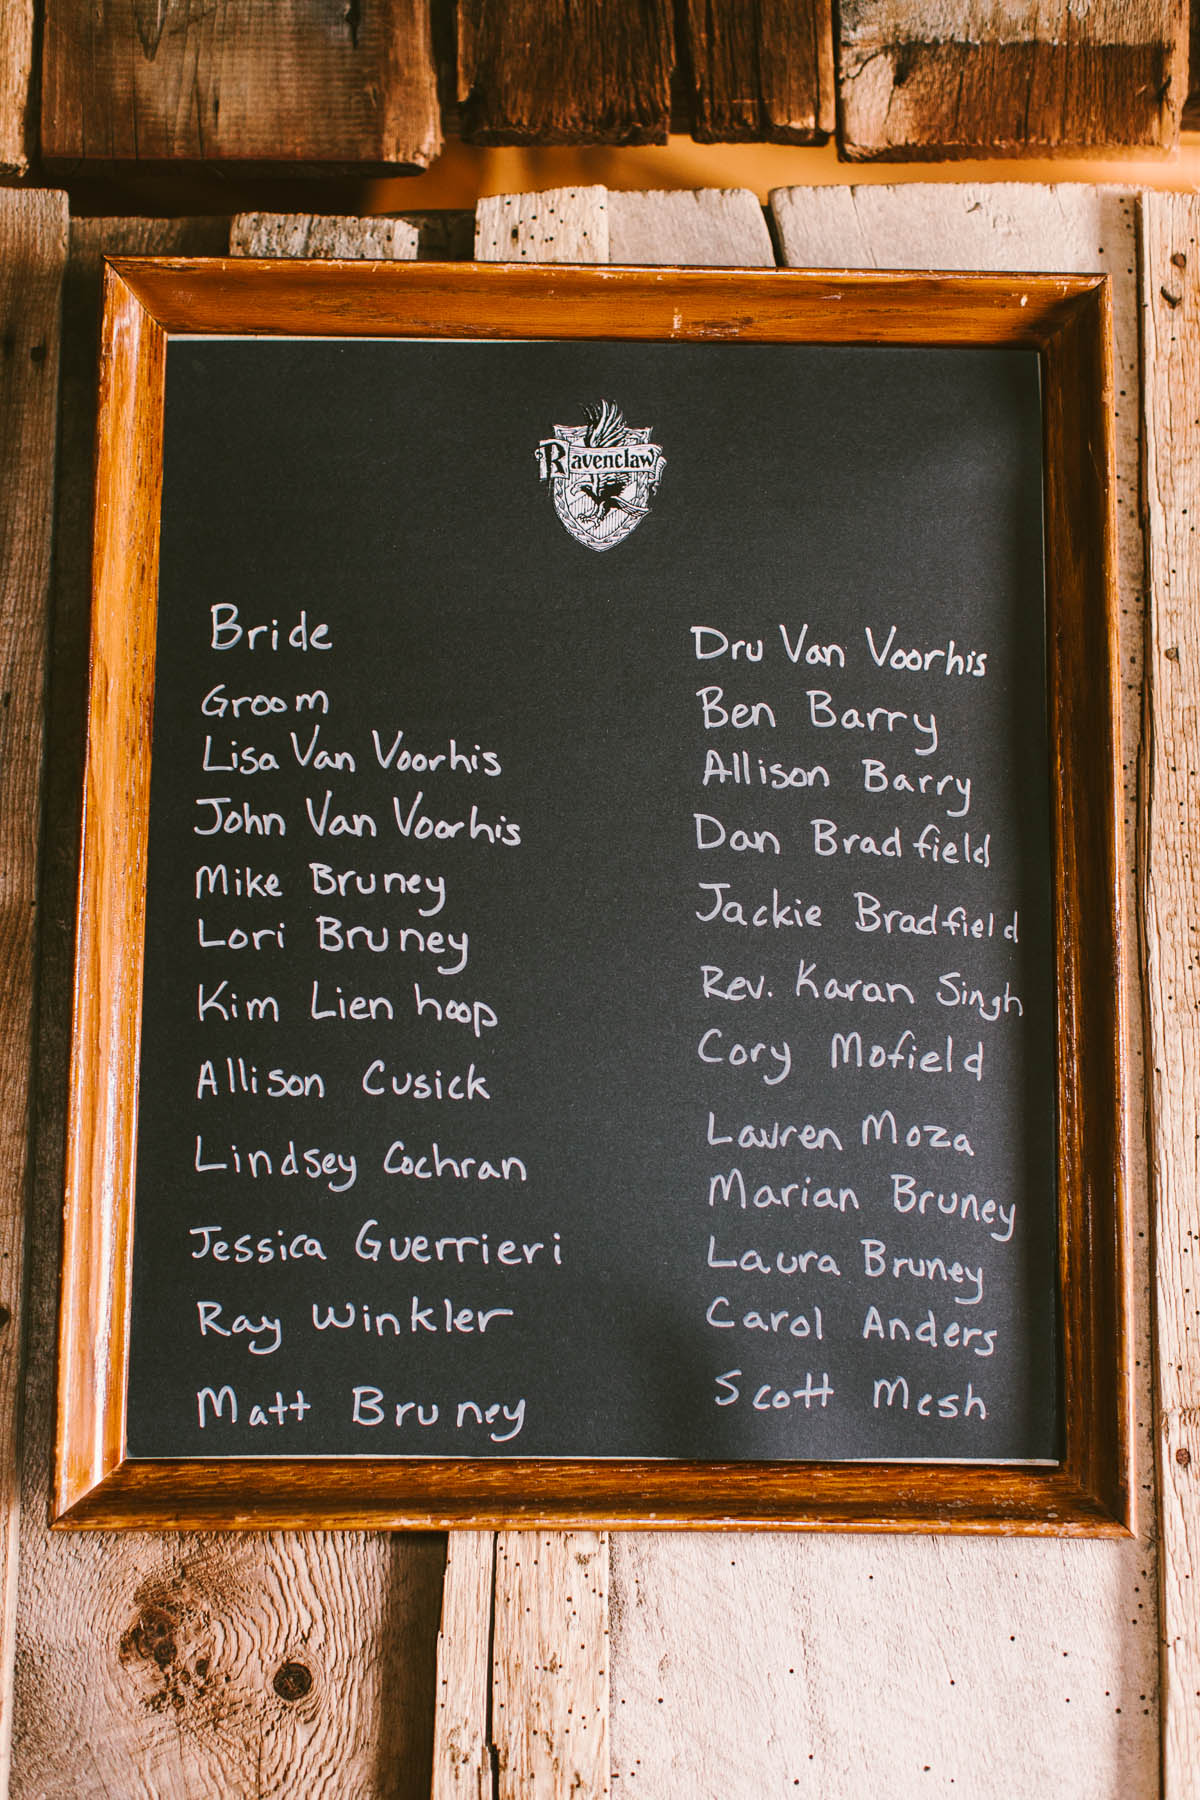 Ravenclaw
Bride
Groom
Lisa Van Voorhis
John Van Voorhis
Mike Bruney
Lori Bruney
Kim Lien hoop
Allison Cusick
Lindsey Cochran
Jessica Guerrieri
Ray Winkler
Matt Bruney
Dru Van Voorhis
Ben Barry
Allison Barry
Dan Bradfield
Jackie Bradfield
Rev. Karan Singh
Cory Mofield
Lauren Moza
Marian Bruney
Laura Bruney
Carol Anders
Scott Mesh